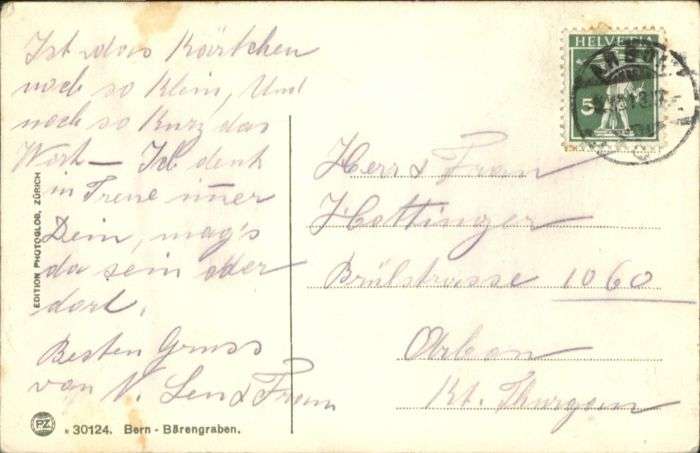 Ist das Kärtchen
noch so klein, Und
noch so kurz das
Wort – Ich denk
in Treue im̅er
Dein, mag's
da sein oder
dort.
Besten Gruss
von N. Len & Frau
HELVETIA
5
Herr & Frau
Hottinger
Brülstrasse 1060
Arbon
Kt. Thurgau
EDITION PHOTOGLOB, ZÜRICH
PZ
30124. Bern - Bärengraben.